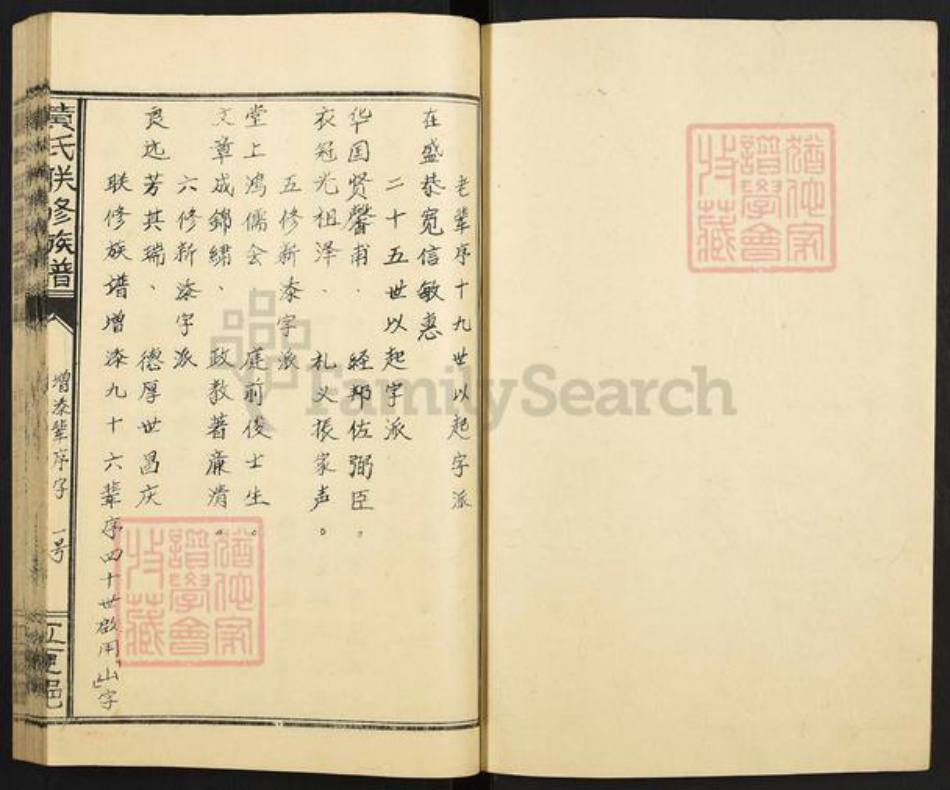 老辈序十九世以起字派
在盛恭宽信敏惠
二十五世以起字派
华国贤馨甫、经邦佐弼臣。
衣冠光祖泽、礼义振家声。
五修新添字派
堂上鸿儒会 庭前俊士生。
文章成锦绣、政教著廉清。
六修新添字派
良述芳其瑞、德厚世昌庆
联修族谱增添九十六辈序四十世启用“山”字
黃氏联修族譜
增添辈序字 一号
江夏邑
猶他家譜學會收藏
猶他家譜學會收藏
FamilySearch